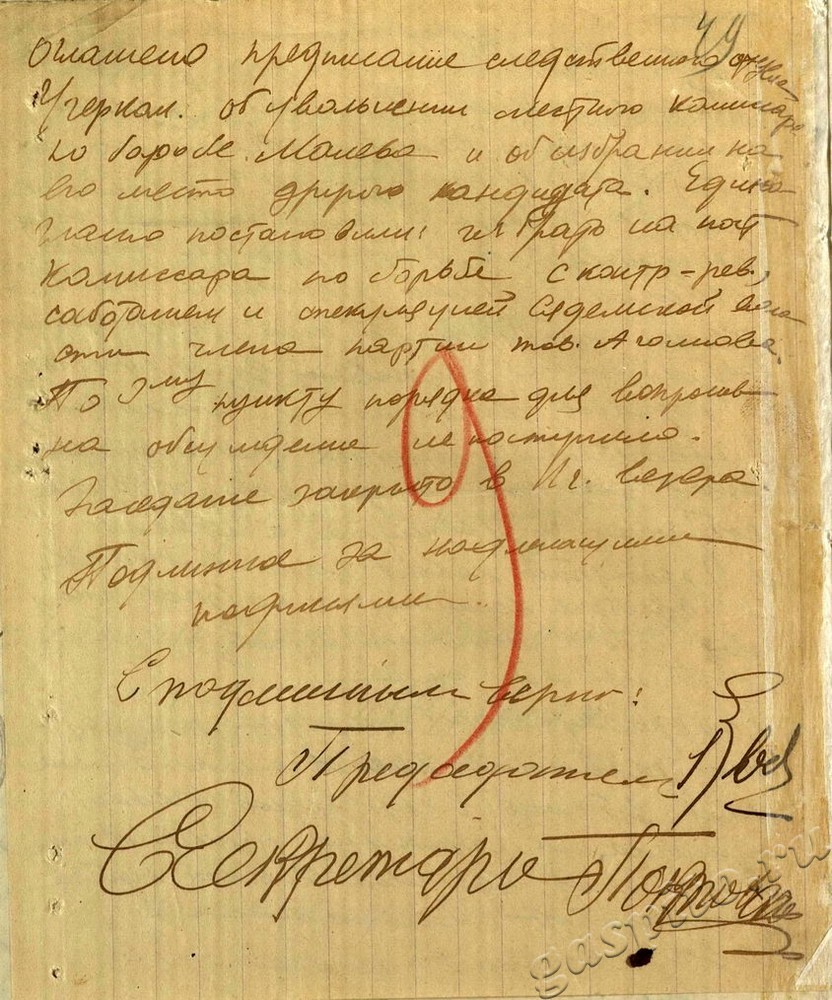 49
Оглашено предписание следственного
Угерком. об увольнении местного комиссара
по борьбе Малева и об избрании на
его место другого кандидата. Едино
гласно постановили: избрать на пост
комиссара по борьбе с контр-рев.,
саботажем и спекуляцией Седемской воло
сти члена партии тов. Аголцова.
По 3му пункту порядка дня вопросов
на обсуждение не поступило.
Заседание закрыто в 11 ч. вечера.
Подлинное за надлежащими
подписями.
С подлинным верно:
Председатель
Секретарь
gaspiko.ru